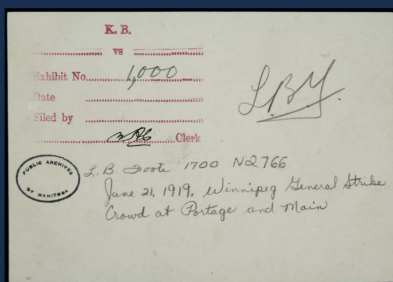 K. B.
vs
Exhibit No. 1,000
Date
Filed by
Clerk
L.B.Y.
PUBLIC ARCHIVES
OF MANITOBA
L. B. Foote 1700 N2766
June 21, 1919, Winnipeg General Strike
Crowd at Portage and Main